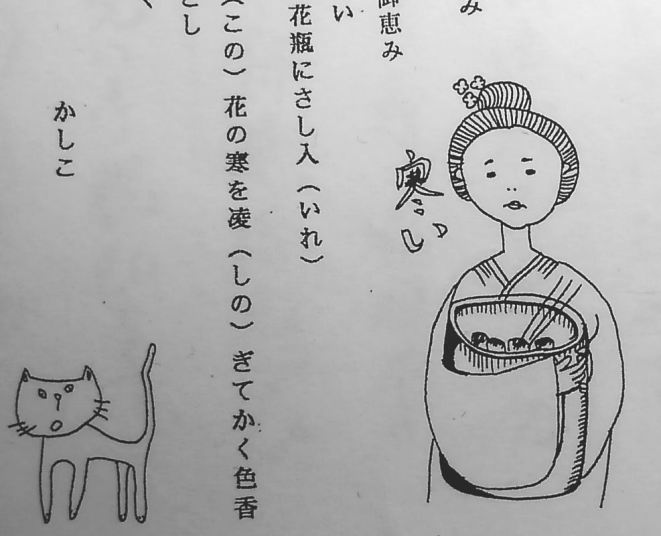 み
御恵み
い
花瓶にさし入（いれ）
（この）花の寒を凌（しの）ぎてかく色香
とし
かしこ
寒い